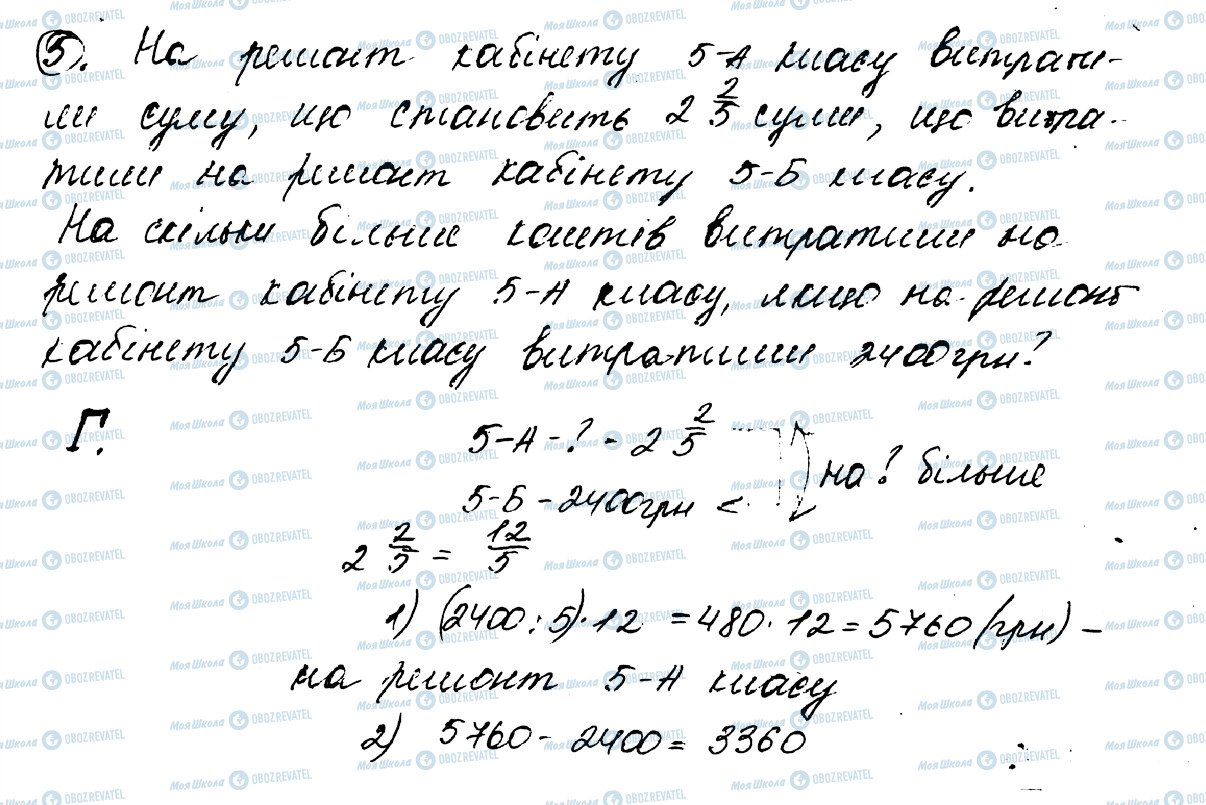 5). На ремонт кабінету 5-А класу витрати-
ли суму, що становить 2 2/5 суми, що витра-
тили на ремонт кабінету 5-Б класу.
На скільки більше коштів витратили на
ремонт кабінету 5-А класу, якщо на ремонт
кабінету 5-Б класу витратили 2400 грн?
Г.
5-А - ? - 2 2/5
на ? більше
5-Б - 2400 грн <
2 2/5 = 12/5
1) (2400 : 5) · 12 = 480 · 12 = 5760 (грн) –
на ремонт 5-А класу
2) 5760 - 2400 = 3360
Моя Школа OBOZREVATEL